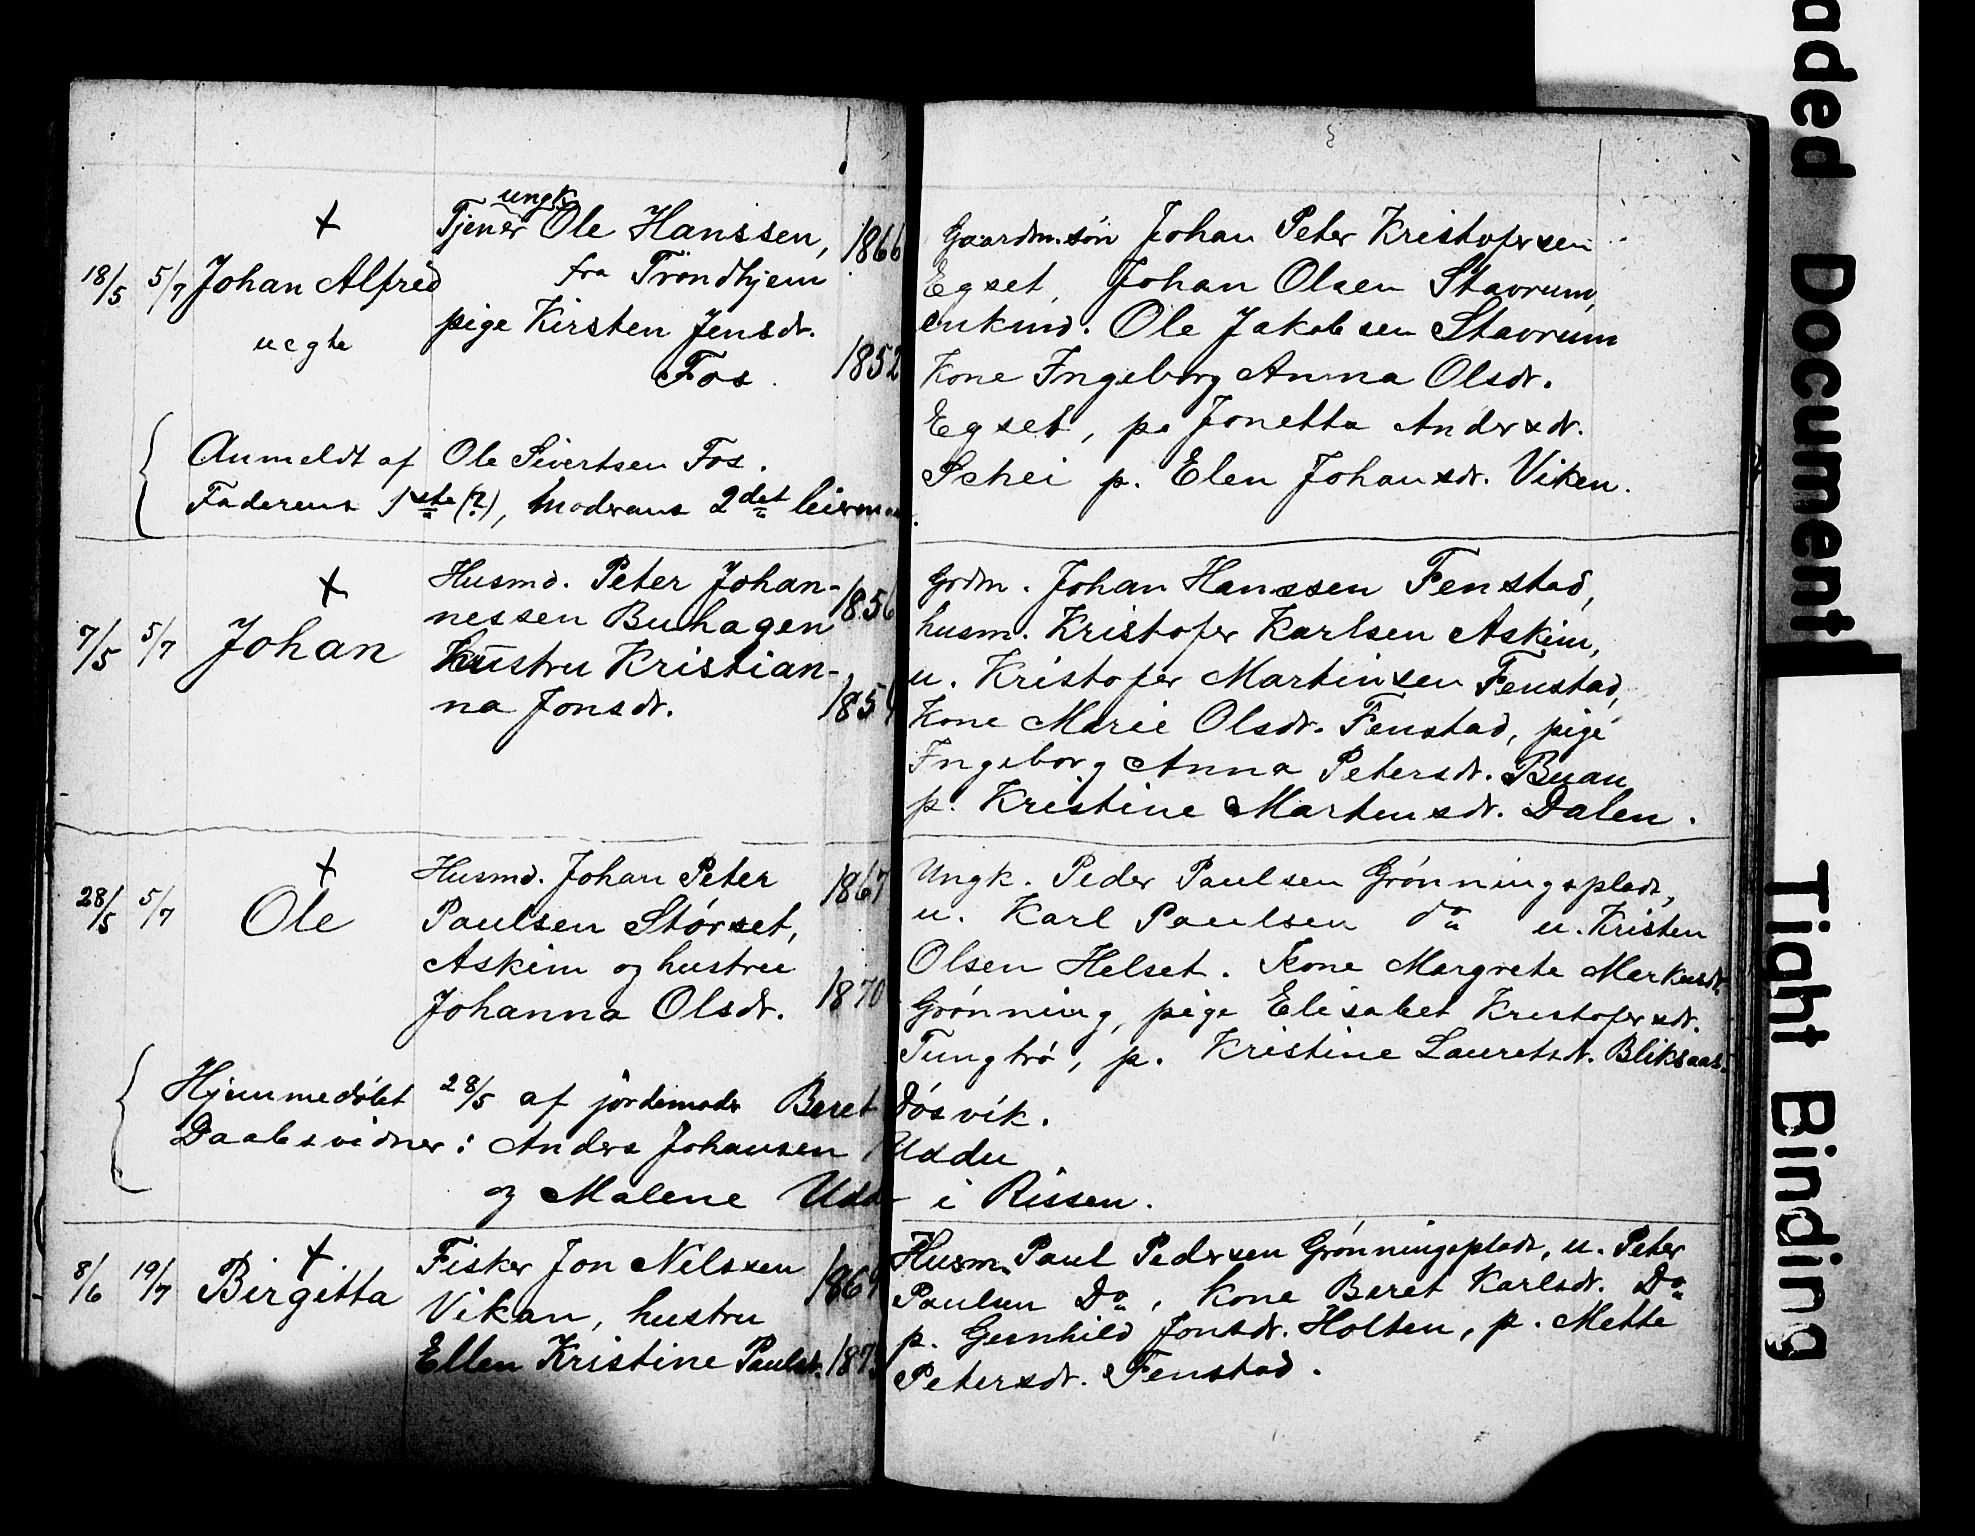 ungk.
+ Tjener Ole Hanssen, 1866
18/5 5/7 Johan Alfred fra Trondhjem
uegte pige Kirsten Jensdr.
Fos. 1852
Anmeldt af Ole Sivertsen Fos.
Faderens 1ste (?), Moderens 2det leierm
Gaardm.søn Johan Peter Kristofersen
Egset, Johan Olsen Stavrum,
enkmd. Ole Jakobsen Stavrum
Kone Ingeborg Anna Olsdr.
Egset, pe Jonetta Andersdr.
Schei p. Elen Johansdr. Viken.
+ Husmd. Peter Johan- 1856
nessen Buhagen
7/5 5/7 Johan hustru Kristian-
na Jonsdr. 185
Grdm. Johan Hanssen Fenstad,
husm. Kristofer Karlsen Askim,
u. Kristofer Martinsen Fenstad,
Kone Marie Olsdr. Fenstad, pige
Ingeborg Anna Petersdr. Buan
p. Kristine Martensdr. Dalen.
+ Husmd. Johan Peter 1867
28/5 5/7 Ole Paulsen Størset,
Askim og hustru 1870
Johanna Olsdr.
Ungk. Peder Paulsen Grønningsplads,
u. Karl Paulsen do u. Kristen
Olsen Helset. Kone Margrete Markusdr.
Grønning, pige Elisabet Kristofersdr.
Tungtrø, p. Kristine Lauretsdr. Bliksaas.
Hjemmedøbt 28/5 af jordemoder Beret Døsvik.
Daabsvidner: Anders Johansen Uddu
og Malene Uddu i Rissen.
+
8/6 19/7 Birgitta Fisker Jon Nilssen 1869
Vikan, hustru
Ellen Kristine Paulsdr. 187
Husm. Paul Pedersen Grønningsplads, u. Peter
Paulsen Do, Kone Beret Karlsdr. Do
p. Gunhild Jonsdr. Holten, p. Mette
Petersdr. Fenstad.
aded Document
Tight Binding